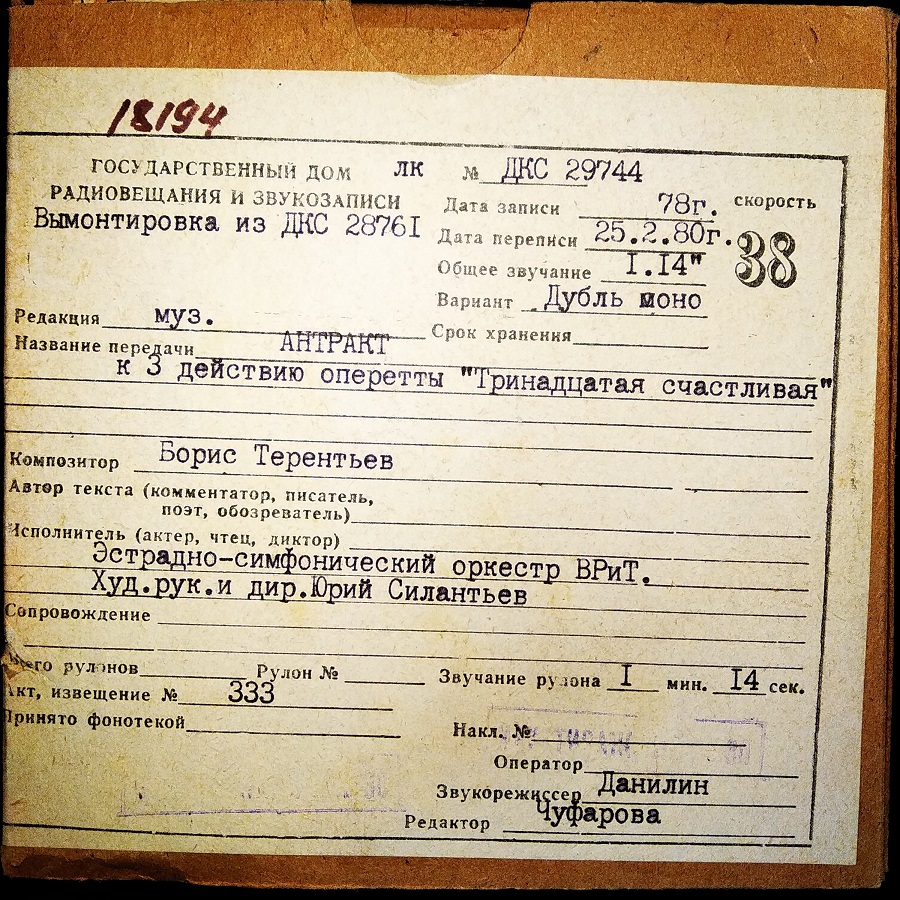 18194
ГОСУДАРСТВЕННЫЙ ДОМ ЛК № ДКС 29744
РАДИОВЕЩАНИЯ И ЗВУКОЗАПИСИ
Вымонтировка из ДКС 28761
Дата записи 78г. скорость
Дата переписи 25.2.80г. 38
Общее звучание 1.14"
Вариант Дубль моно
Редакция муз. Срок хранения
Название передачи АНТРАКТ
к 3 действию оперетты "Тринадцатая счастливая"
Композитор Борис Терентьев
Автор текста (комментатор, писатель,
поэт, обозреватель)
Исполнитель (актер, чтец, диктор)
Эстрадно-симфонический оркестр ВРиТ.
Худ.рук.и дир.Юрий Силантьев
Сопровождение
Всего рулонов Рулон № Звучание рулона 1 мин. 14 сек.
Акт, извещение № 333
Принято фонотекой
Накл. №
Оператор
Звукорежиссер Данилин
Редактор Чуфарова